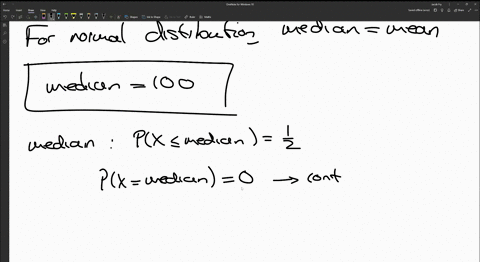 For normal distribution median = mean
median = 100
median : P(X ≤ median) = 1/2
P(X = median) = 0 → cont